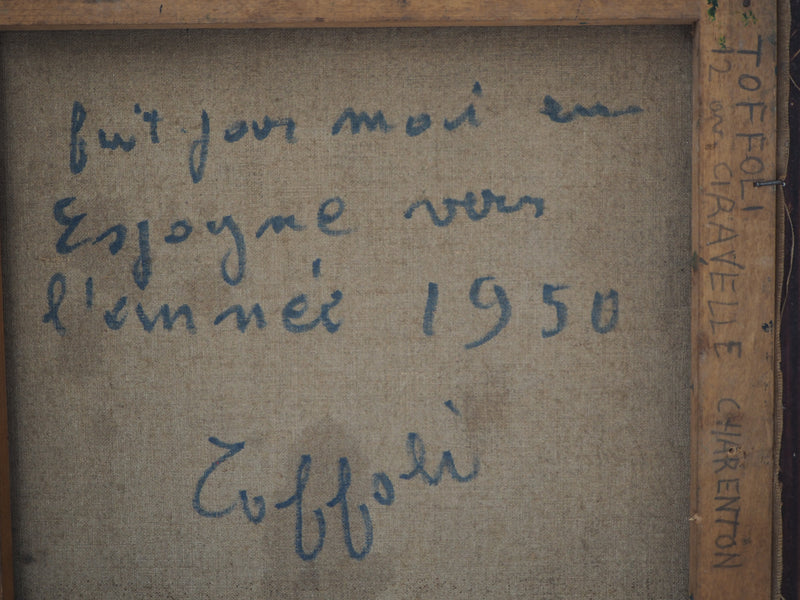 fait par moi en
Espagne vers
l'année 1950
Toffoli
TOFFOLI
12 CHARENTON